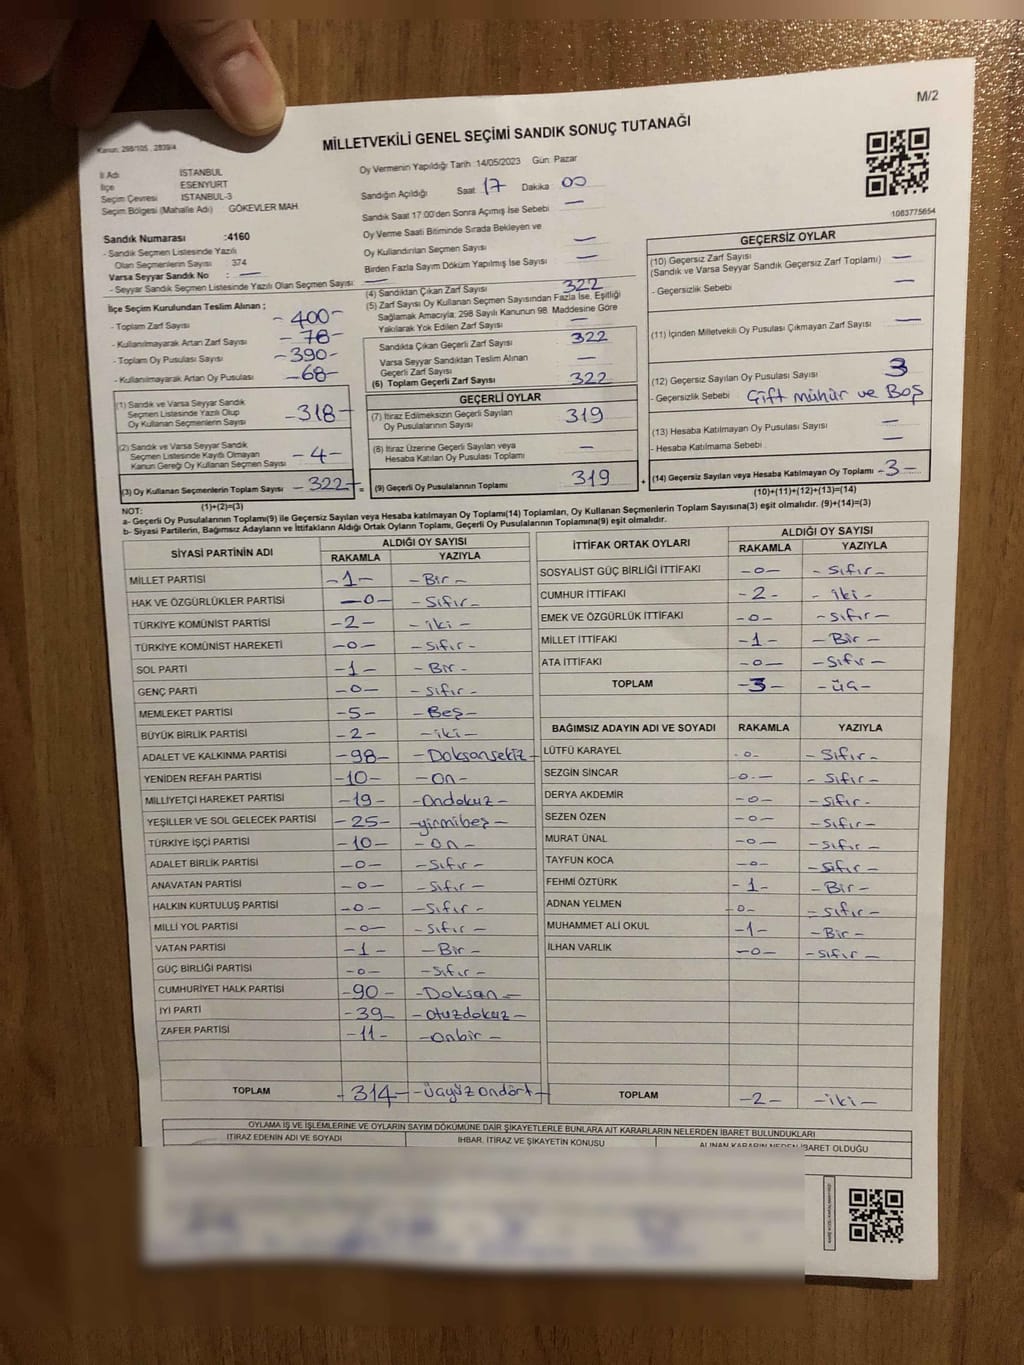 M/2
Kanun: 298/105 , 2839/4
MİLLETVEKİLİ GENEL SEÇİMİ SANDIK SONUÇ TUTANAĞI
İl Adı İSTANBUL
İlçe ESENYURT
Seçim Çevresi İSTANBUL-3
Seçim Bölgesi (Mahalle Adı) GÖKEVLER MAH.
Oy Vermenin Yapıldığı Tarih :14/05/2023 Gün: Pazar
Sandığın Açıldığı Saat 17 Dakika 00
Sandık Saat 17:00'den Sonra Açılmış İse Sebebi —
Oy Verme Saati Bitiminde Sırada Bekleyen ve
Oy Kullandırılan Seçmen Sayısı —
Birden Fazla Sayım Döküm Yapılmış İse Sayısı —
1083775654
Sandık Numarası :4160
- Sandık Seçmen Listesinde Yazılı
Olan Seçmenlerin Sayısı 374
Varsa Seyyar Sandık No : —
- Seyyar Sandık Seçmen Listesinde Yazılı Olan Seçmen Sayısı: —
İlçe Seçim Kurulundan Teslim Alınan ;
- Toplam Zarf Sayısı -400-
- Kullanılmayarak Artan Zarf Sayısı -78-
- Toplam Oy Pusulası Sayısı -390-
- Kullanılmayarak Artan Oy Pusulası -68-
(1) Sandık ve Varsa Seyyar Sandık
Seçmen Listesinde Yazılı Olup
Oy Kullanan Seçmenlerin Sayısı -318-
(2) Sandık ve Varsa Seyyar Sandık
Seçmen Listesinde Kayıtlı Olmayan
Kanun Gereği Oy Kullanan Seçmen Sayısı -4-
(3) Oy Kullanan Seçmenlerin Toplam Sayısı -322-
(1)+(2)=(3)
(4) Sandıktan Çıkan Zarf Sayısı 322
(5) Zarf Sayısı Oy Kullanan Seçmen Sayısından Fazla İse, Eşitliği
Sağlamak Amacıyla, 298 Sayılı Kanunun 98. Maddesine Göre
Yakılarak Yok Edilen Zarf Sayısı —
Sandıkta Çıkan Geçerli Zarf Sayısı 322
Varsa Seyyar Sandıktan Teslim Alınan
Geçerli Zarf Sayısı —
(6) Toplam Geçerli Zarf Sayısı 322
GEÇERLİ OYLAR
(7) İtiraz Edilmeksizin Geçerli Sayılan
Oy Pusulalarının Sayısı 319
(8) İtiraz Üzerine Geçerli Sayılan veya
Hesaba Katılan Oy Pusulası Toplamı —
= (9) Geçerli Oy Pusulalarının Toplamı 319 +
GEÇERSİZ OYLAR
(10) Geçersiz Zarf Sayısı —
(Sandık ve Varsa Seyyar Sandık Geçersiz Zarf Toplamı)
- Geçersizlik Sebebi —
(11) İçinden Milletvekili Oy Pusulası Çıkmayan Zarf Sayısı —
(12) Geçersiz Sayılan Oy Pusulası Sayısı 3
- Geçersizlik Sebebi Çift mühür ve Boş
(13) Hesaba Katılmayan Oy Pusulası Sayısı —
- Hesaba Katılmama Sebebi —
(14) Geçersiz Sayılan veya Hesaba Katılmayan Oy Toplamı -3-
(10)+(11)+(12)+(13)=(14)
NOT:
a- Geçerli Oy Pusulalarının Toplamı(9) ile Geçersiz Sayılan veya Hesaba katılmayan Oy Toplamı(14) Toplamları, Oy Kullanan Seçmenlerin Toplam Sayısına(3) eşit olmalıdır. (9)+(14)=(3)
b- Siyasi Partilerin, Bağımsız Adayların ve İttifakların Aldığı Ortak Oyların Toplamı, Geçerli Oy Pusulalarının Toplamına(9) eşit olmalıdır.
SİYASİ PARTİNİN ADI ALDIĞI OY SAYISI
RAKAMLA YAZIYLA
MİLLET PARTİSİ -1- -Bir-
HAK VE ÖZGÜRLÜKLER PARTİSİ -0- -Sıfır-
TÜRKİYE KOMÜNİST PARTİSİ -2- -iki-
TÜRKİYE KOMÜNİST HAREKETİ -0- -Sıfır-
SOL PARTİ -1- -Bir-
GENÇ PARTİ -0- -Sıfır-
MEMLEKET PARTİSİ -5- -Beş-
BÜYÜK BİRLİK PARTİSİ -2- -iki-
ADALET VE KALKINMA PARTİSİ -98- -Doksansekiz-
YENİDEN REFAH PARTİSİ -10- -On-
MİLLİYETÇİ HAREKET PARTİSİ -19- -Ondokuz-
YEŞİLLER VE SOL GELECEK PARTİSİ -25- -yirmibeş-
TÜRKİYE İŞÇİ PARTİSİ -10- -On-
ADALET BİRLİK PARTİSİ -0- -Sıfır-
ANAVATAN PARTİSİ -0- -Sıfır-
HALKIN KURTULUŞ PARTİSİ -0- -Sıfır-
MİLLİ YOL PARTİSİ -0- -Sıfır-
VATAN PARTİSİ -1- -Bir-
GÜÇ BİRLİĞİ PARTİSİ -0- -Sıfır-
CUMHURİYET HALK PARTİSİ -90- -Doksan-
İYİ PARTİ -39- -otuzdokuz-
ZAFER PARTİSİ -11- -onbir-
TOPLAM -314- -üçyüzondört-
İTTİFAK ORTAK OYLARI ALDIĞI OY SAYISI
RAKAMLA YAZIYLA
SOSYALİST GÜÇ BİRLİĞİ İTTİFAKI -0- -Sıfır-
CUMHUR İTTİFAKI -2- -iki-
EMEK VE ÖZGÜRLÜK İTTİFAKI -0- -Sıfır-
MİLLET İTTİFAKI -1- -Bir-
ATA İTTİFAKI -0- -Sıfır-
TOPLAM -3- -üç-
BAĞIMSIZ ADAYIN ADI VE SOYADI RAKAMLA YAZIYLA
LÜTFÜ KARAYEL -0- -Sıfır-
SEZGİN SİNCAR -0- -Sıfır-
DERYA AKDEMİR -0- -Sıfır-
SEZEN ÖZEN -0- -Sıfır-
MURAT ÜNAL -0- -Sıfır-
TAYFUN KOCA -0- -Sıfır-
FEHMİ ÖZTÜRK -1- -Bir-
ADNAN YELMEN -0- -Sıfır-
MUHAMMET ALİ OKUL -1- -Bir-
İLHAN VARLIK -0- -Sıfır-
TOPLAM -2- -iki-
OYLAMA İŞ VE İŞLEMLERİNE VE OYLARIN SAYIM DÖKÜMÜNE DAİR ŞİKAYETLERLE BUNLARA AİT KARARLARIN NELERDEN İBARET BULUNDUKLARI
İTİRAZ EDENİN ADI VE SOYADI İHBAR, İTİRAZ VE ŞİKAYETİN KONUSU ALINAN KARARIN NEDEN İBARET OLDUĞU